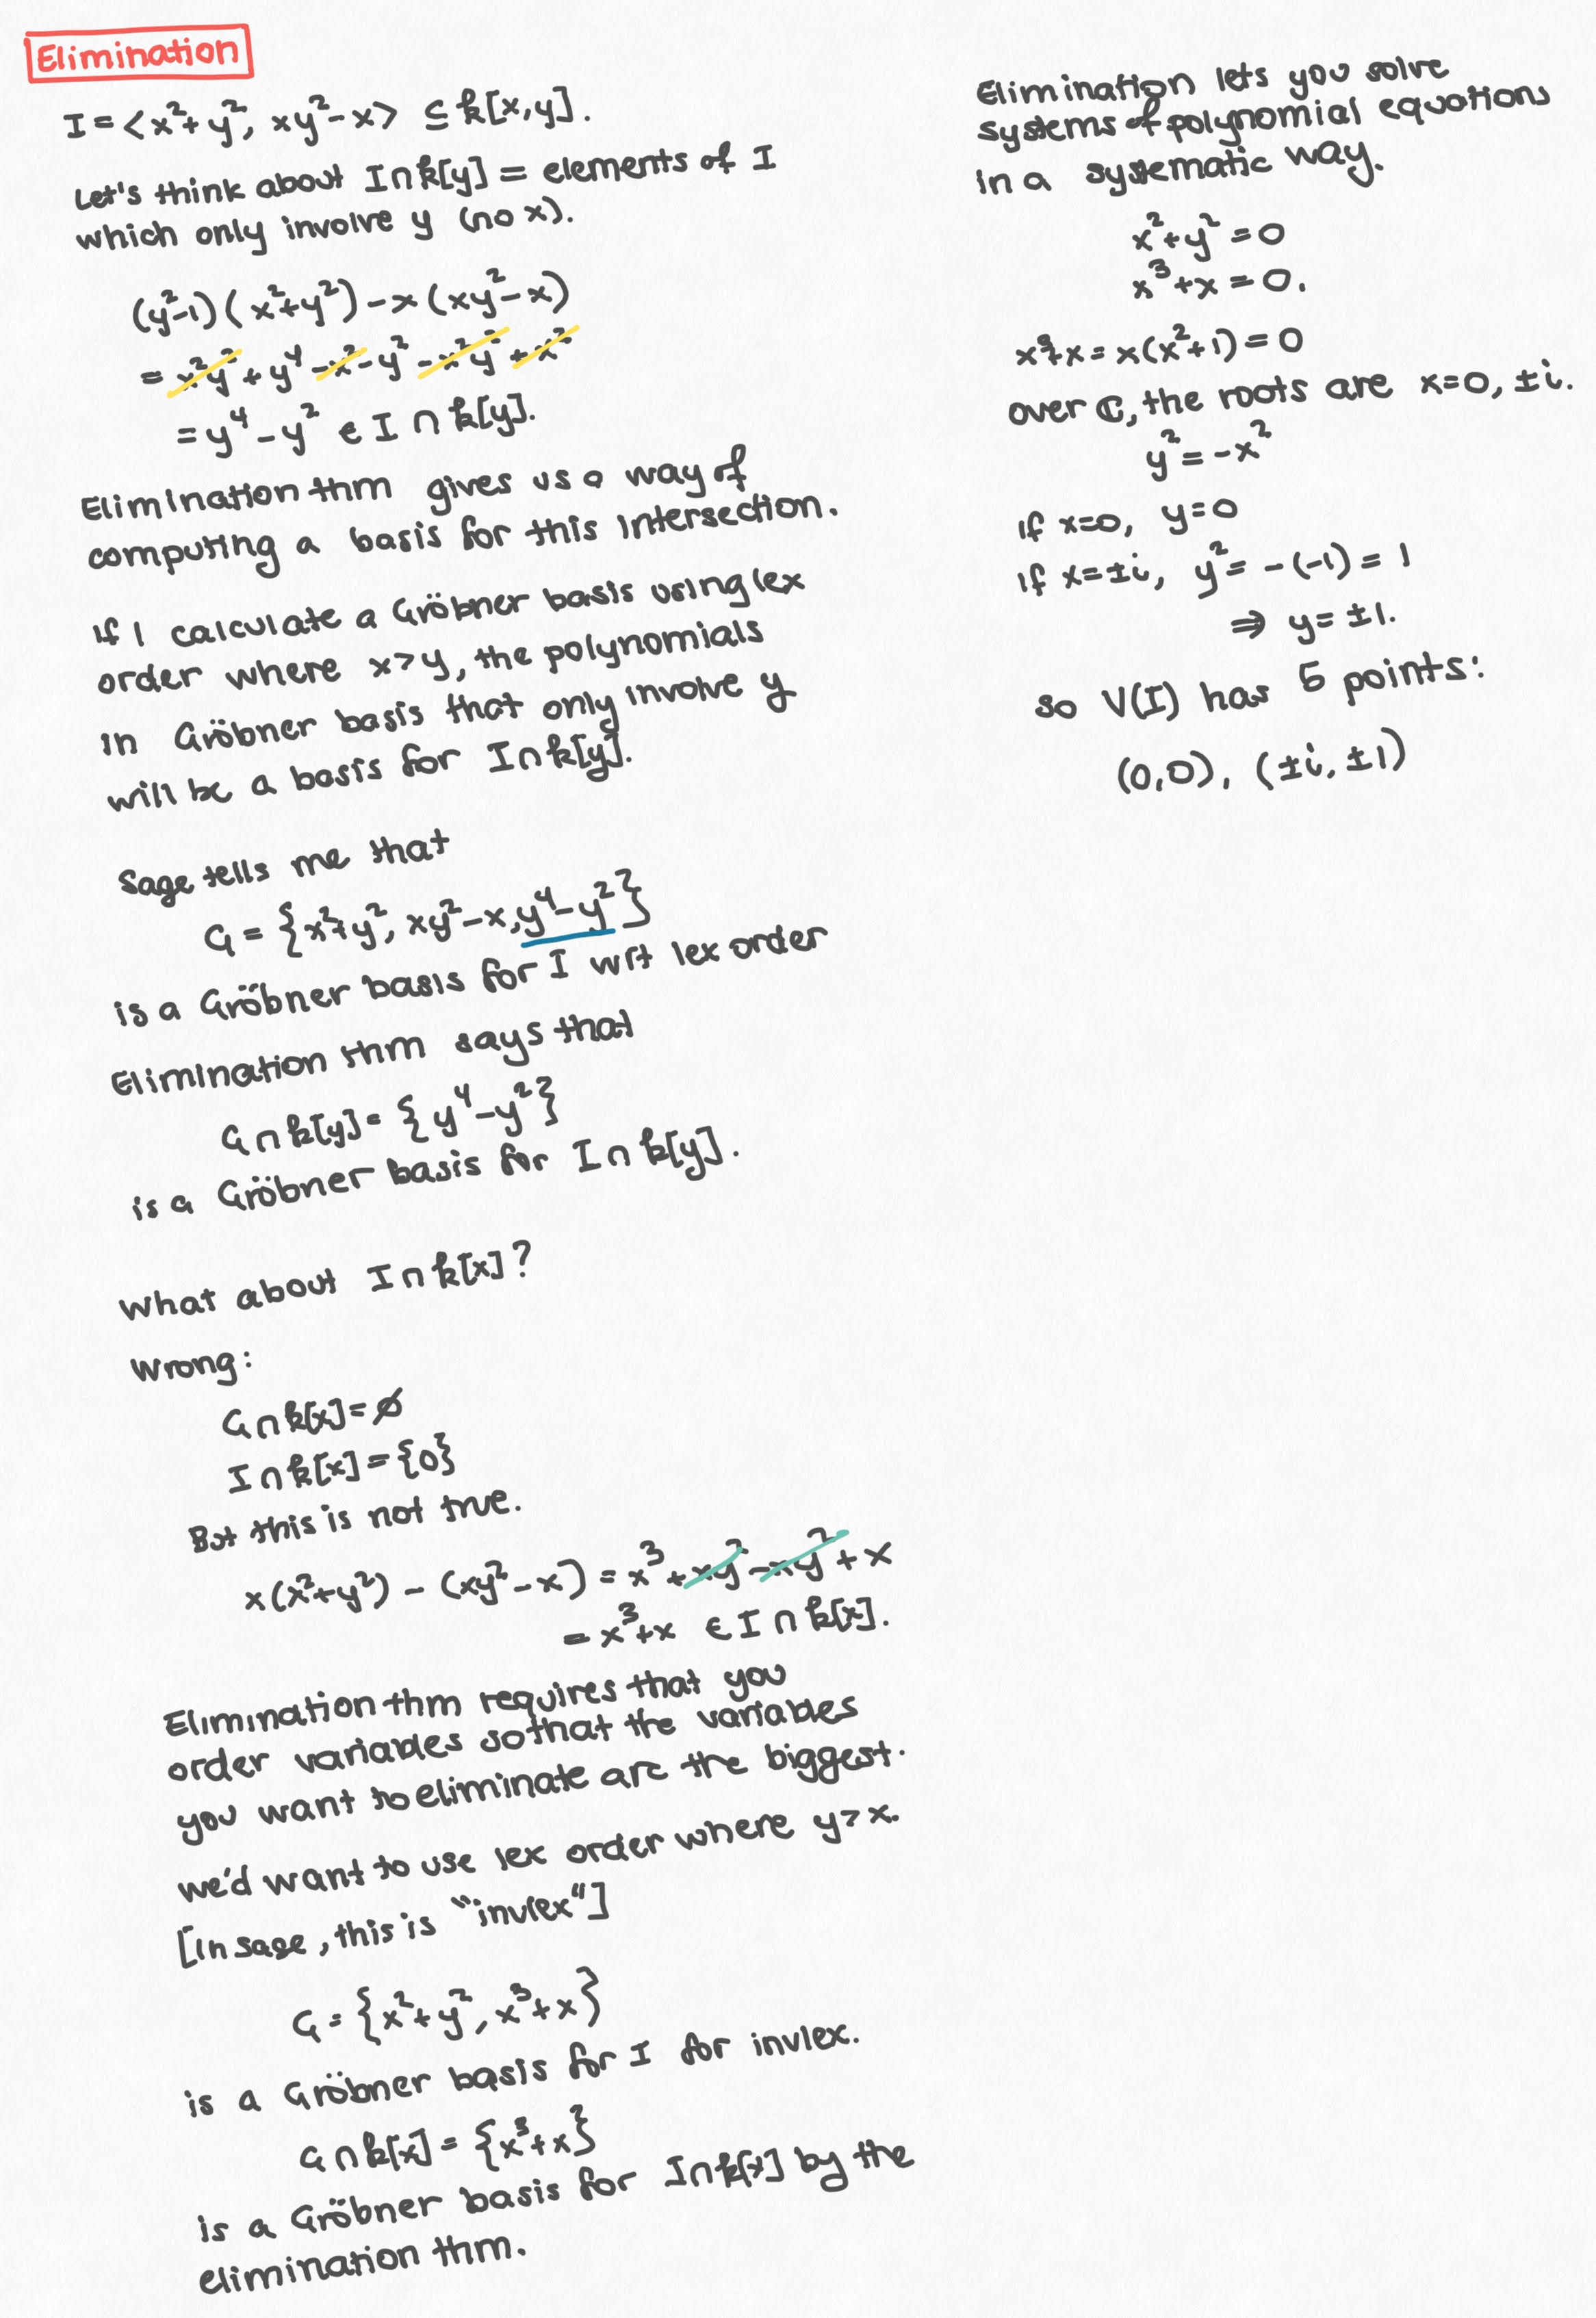 Elimination
I = <x²+y², xy²-x> ⊆ k[x,y].
Let's think about I∩k[y] = elements of I
which only involve y (no x).
(y²-1)(x²+y²) - x(xy²-x)
= x²y² + y⁴ - x² - y² - x²y² + x²
= y⁴ - y² ∈ I ∩ k[y].
Elimination thm gives us a way of
computing a basis for this intersection.
If I calculate a Gröbner basis using lex
order where x>y, the polynomials
in Gröbner basis that only involve y
will be a basis for I∩k[y].
Sage tells me that
G = {x²+y², xy²-x, y⁴-y²}
is a Gröbner basis for I wrt lex order
Elimination thm says that
G∩k[y] = {y⁴-y²}
is a Gröbner basis for I∩k[y].
What about I∩k[x]?
Wrong:
G∩k[x] = ∅
I∩k[x] = {0}
But this is not true.
x(x²+y²) - (xy²-x) = x³ + xy² - xy² + x
= x³+x ∈ I∩k[x].
Elimination thm requires that you
order variables so that the variables
you want to eliminate are the biggest.
we'd want to use lex order where y>x.
[In sage, this is "invlex"]
G = {x²+y², x³+x}
is a Gröbner basis for I for invlex.
G∩k[x] = {x³+x}
is a Gröbner basis for I∩k[x] by the
elimination thm.
Elimination lets you solve
systems of polynomial equations
in a systematic way.
x²+y² = 0
x³+x = 0.
x³+x = x(x²+1) = 0
over ℂ, the roots are x=0, ±i.
y² = -x²
If x=0, y=0
If x=±i, y² = -(-1) = 1
⇒ y = ±1.
so V(I) has 5 points:
(0,0), (±i, ±1)